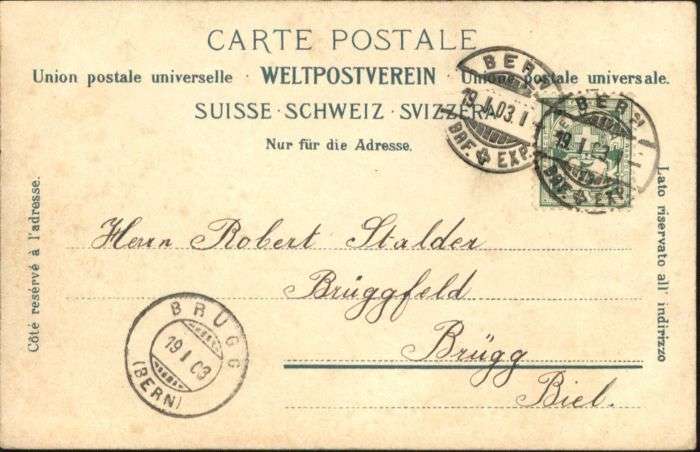 CARTE POSTALE
Union postale universelle · WELTPOSTVEREIN · Unione postale universale.
SUISSE · SCHWEIZ · SVIZZERA
Nur für die Adresse.
BERN
19.I.03.I
BRF. EXP.
BERN
19.I.03
BRF. EXP.
Côté resérvé à l'adresse.
Lato riservato all' indirizzo
Herrn Robert Stalder
Brüggfeld
Brügg
Biel.
BRÜGG
19 I 03
(BERN)